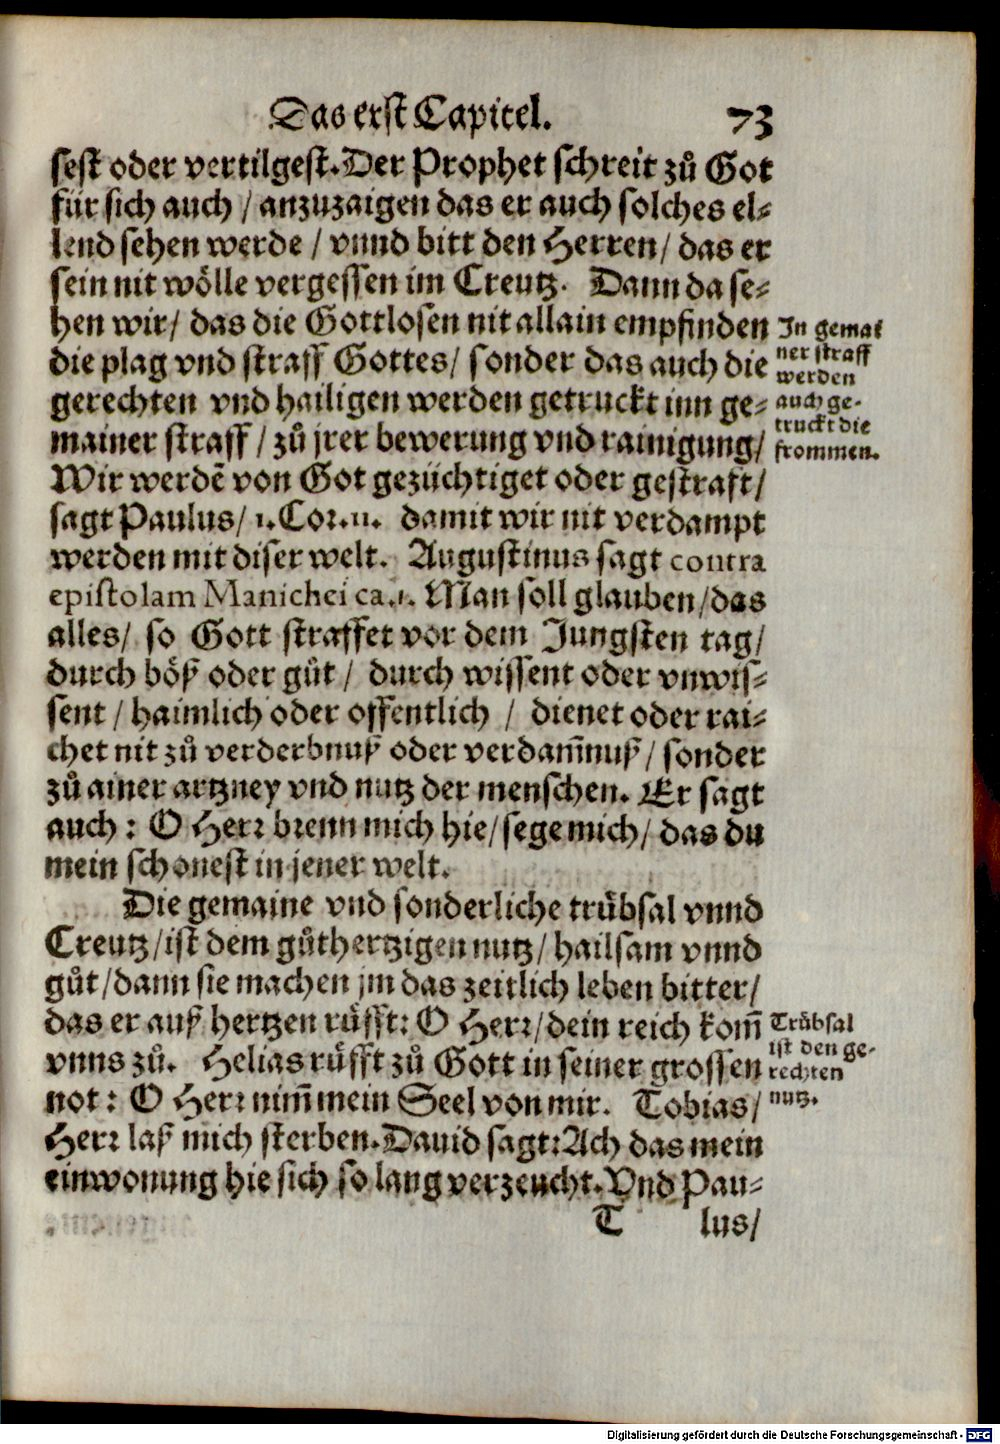 Das erst Capitel. 73
sest oder vertilgest. Der Prophet schreit zů Got
für sich auch / anzuzaigen das er auch solches el-
lend sehen werde / vnnd bitt den Herren / das er
sein nit wölle vergessen im Creutz. Dann da se-
hen wir / das die Gottlosen nit allain empfinden
die plag vnd straff Gottes / sonder das auch die
gerechten vnd hailigen werden getruckt inn ge-
mainer straff / zů jrer bewerung vnd rainigung /
Wir werdẽ von Got gezüchtiget oder gestraft /
sagt Paulus / 1. Cor. 11. damit wir nit verdampt
werden mit diser welt. Augustinus sagt contra
epistolam Manichei ca. 1. Man soll glauben / das
alles / so Gott straffet vor dem Jungsten tag /
durch böß oder gůt / durch wissent oder vnwis-
sent / haimlich oder offentlich / dienet oder rai-
chet nit zů verderbnuß oder verdam̃nuß / sonder
zů ainer artzney vnd nutz der menschen. Er sagt
auch : O Herr brenn mich hie / sege mich / das du
mein schonest in jener welt.
Die gemaine vnd sonderliche trübsal vnnd
Creutz / ist dem gůthertzigen nutz / hailsam vnnd
gůt / dann sie machen jm das zeitlich leben bitter /
das er auß hertzen růfft : O Herr / dein reich kom̃
vnns zů. Helias růfft zů Gott in seiner grossen
not : O Herr nim̃ mein Seel von mir. Tobias /
Herr laß mich sterben. Dauid sagt : Ach das mein
einwonung hie sich so lang verzeucht. Vnd Pau-
T lus /
In gemai
ner straff
werden
auch ge-
truckt die
frommen.
Trübsal
ist den ge-
rechten
nutz.
Digitalisierung gefördert durch die Deutsche Forschungsgemeinschaft - DFG